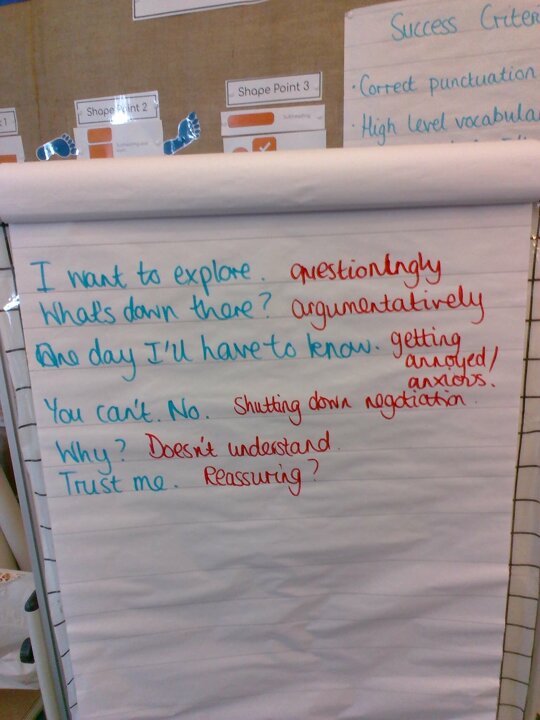 Success Criter
· Correct punctuation
· High level vocabular
Shape Point 2
Shape Point 3
Subheading
I want to explore. questioningly
What's down there? argumentatively
One day I'll have to know. getting
annoyed/
anxious.
You can't. No. Shutting down negotiation.
Why? Doesn't understand.
Trust me. Reassuring?